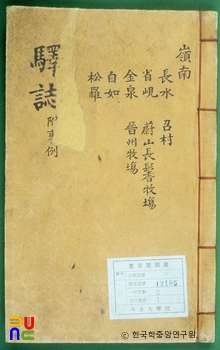 嶺南
長水 召村
省峴 蔚山長鬐牧場
金泉 晉州牧場
自如
松羅
驛誌 附事例
12155
서울大學校
© 한국학중앙연구원